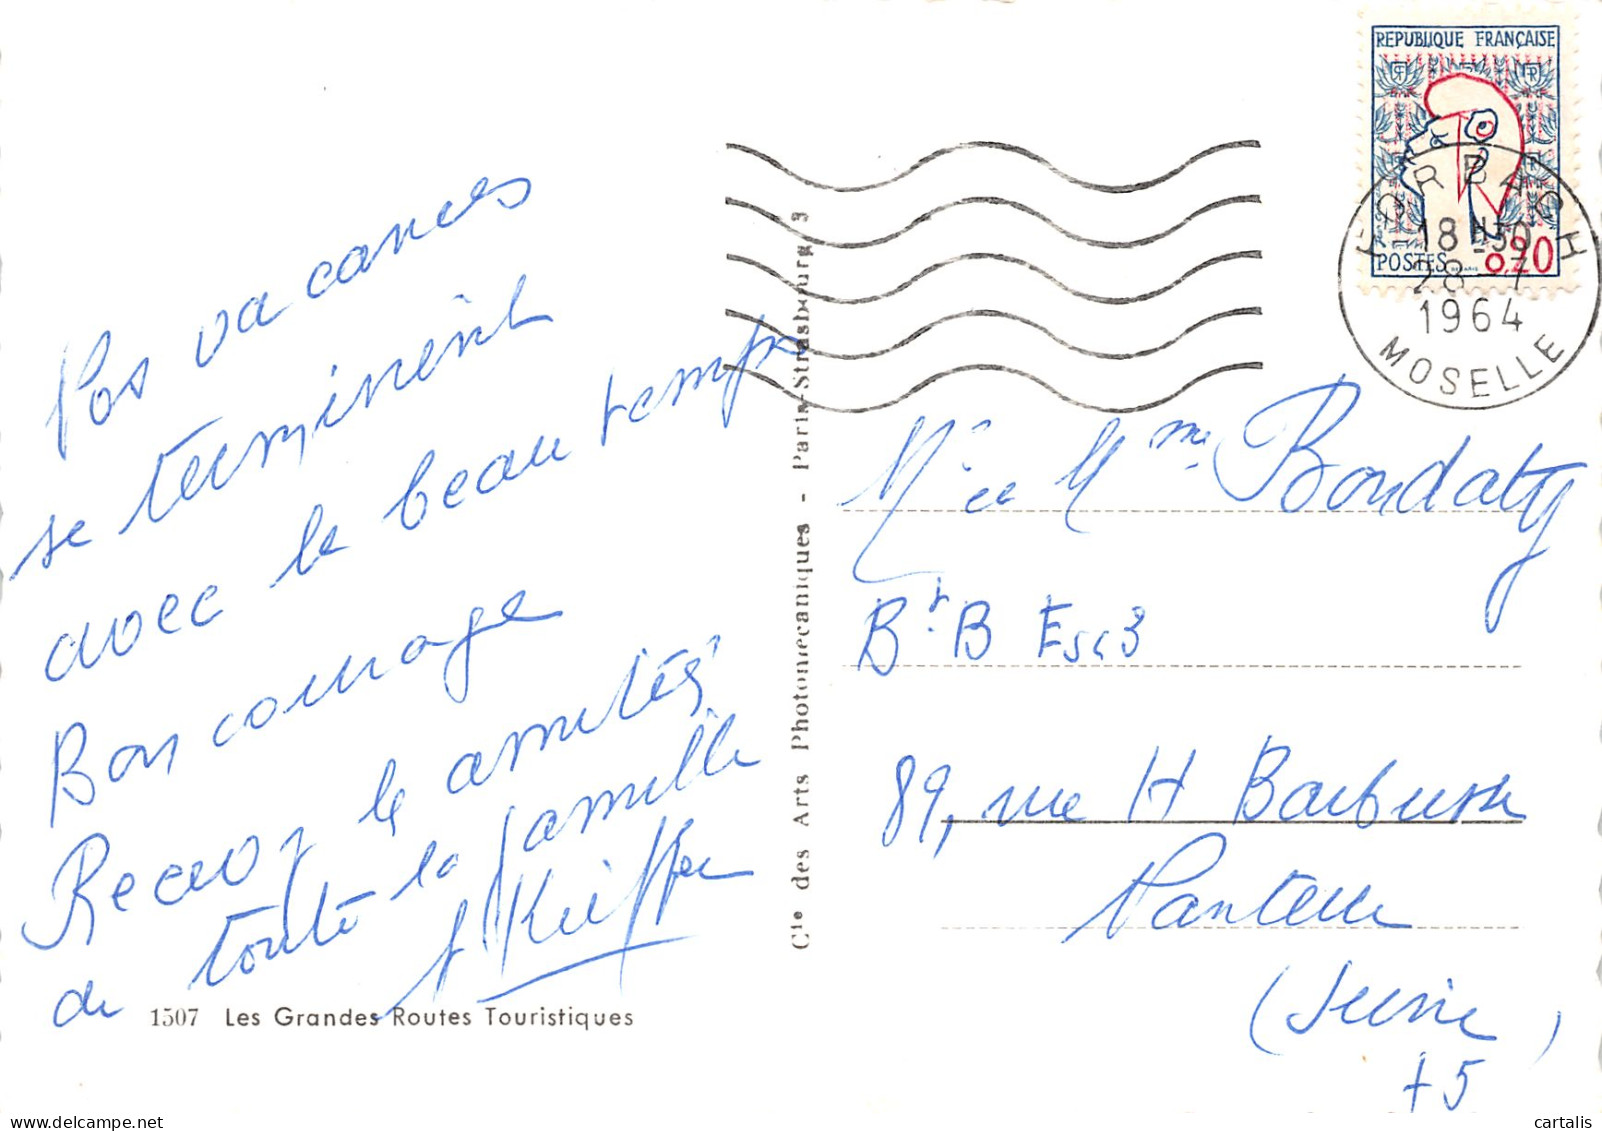 Vos vacances
se terminent
avec le beau temps
Bon courage
Recevez le amitiés
de toute la famille
Kieffer
1507 Les Grandes Routes Touristiques
Cie des Arts Photomécaniques - Paris-Strasbourg 3
REPUBLIQUE FRANÇAISE
POSTES 0,20
FORBACH
18H30
28-7
1964
MOSELLE
Mr et Mme Bondaty
Bt B Esc 3
89, rue H Barbusse
Pantin
(Seine)
+5
cartalis @ www.delcampe.net